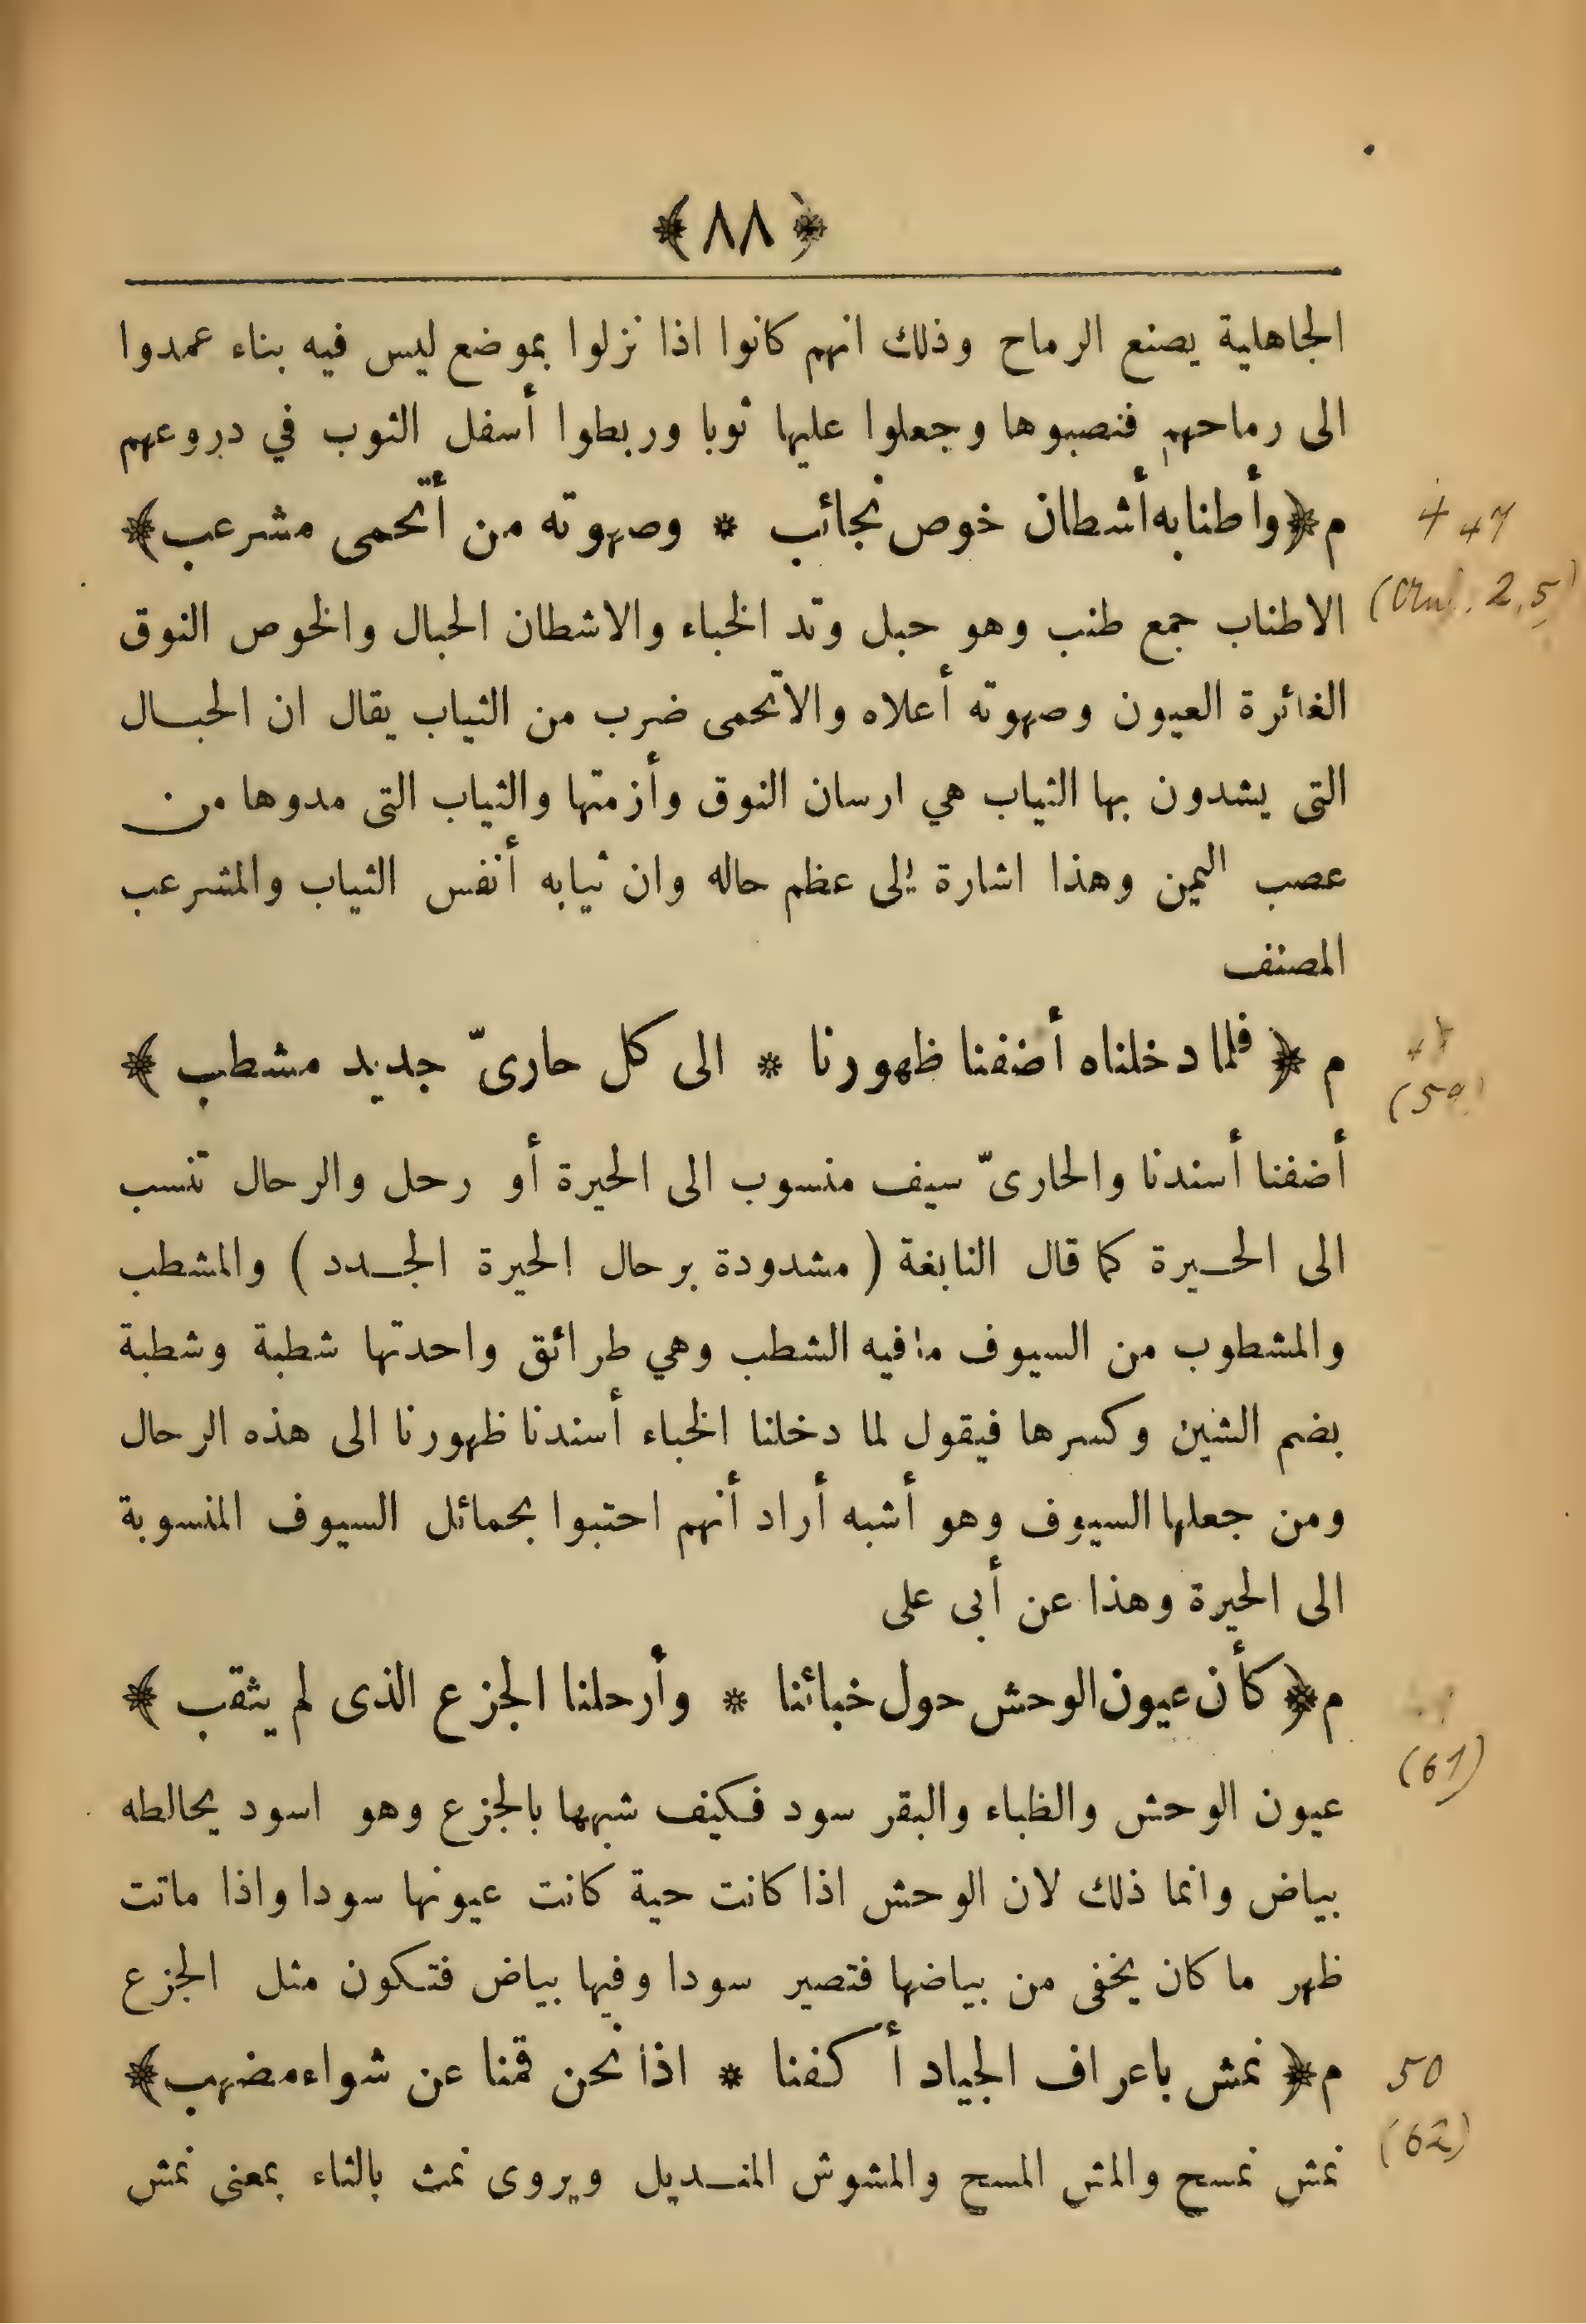 ﴿ ٨٨ ﴾
الجاهلية يصنع الرماح وذلك انهم كانوا اذا نزلوا بموضع ليس فيه بناء عمدوا
الى رماحهم فنصبوها وجعلوا عليها ثوبا وربطوا أسفل الثوب في دروعهم
م﴿ وأطنابه أشطان خوص نجائب * وصهوته من أتحمى مشرعب ﴾
47
الاطناب جمع طنب وهو حبل وتد الخباء والاشطان الحبال والخوص النوق
الغائرة العيون وصهوته أعلاه والاتحمى ضرب من الثياب يقال ان الحبال
التى يشدون بها الثياب هي ارسان النوق وأزمتها والثياب التى مدوها من
عصب اليمن وهذا اشارة إلى عظم حاله وان ثيابه أنفس الثياب والمشرعب
المصنف
م ﴿ فلما دخلناه أضفنا ظهورنا * الى كل حارىّ جديد مشطب ﴾
أضفنا أسندنا والحارىّ سيف منسوب الى الحيرة أو رحل والرحال تنسب
الى الحيرة كما قال النابغة ( مشدودة برحال الحيرة الجدد ) والمشطب
والمشطوب من السيوف ما فيه الشطب وهي طرائق واحدتها شطبة وشطبة
بضم الشين وكسرها فيقول لما دخلنا الخباء أسندنا ظهورنا الى هذه الرحال
ومن جعلها السيوف وهو أشبه أراد أنهم احتبوا بحمائل السيوف المنسوبة
الى الحيرة وهذا عن أبى على
م﴿ كأن عيون الوحش حول خبائنا * وأرحلنا الجزع الذى لم يثقب ﴾
(61)
عيون الوحش والظباء والبقر سود فكيف شبهها بالجزع وهو اسود يخالطه
بياض وانما ذلك لان الوحش اذا كانت حية كانت عيونها سودا واذا ماتت
ظهر ما كان يخفى من بياضها فتصير سودا وفيها بياض فتكون مثل الجزع
م﴿ نمش باعراف الجياد أكفنا * اذا نحن قمنا عن شواء مضهب ﴾
50
(62)
نمش نمسح والمش المسح والمشوش المنديل ويروى نمث بالثاء بمعنى نمش